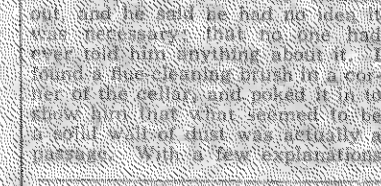 out, and he said he had no idea it
was necessary; that no one had
ever told him anything about it. I
found a flue-cleaning brush in a cor-
ner of the cellar, and poked it in to
show him that what seemed to be
a solid wall of dust was actually a
passage. With a few explanations